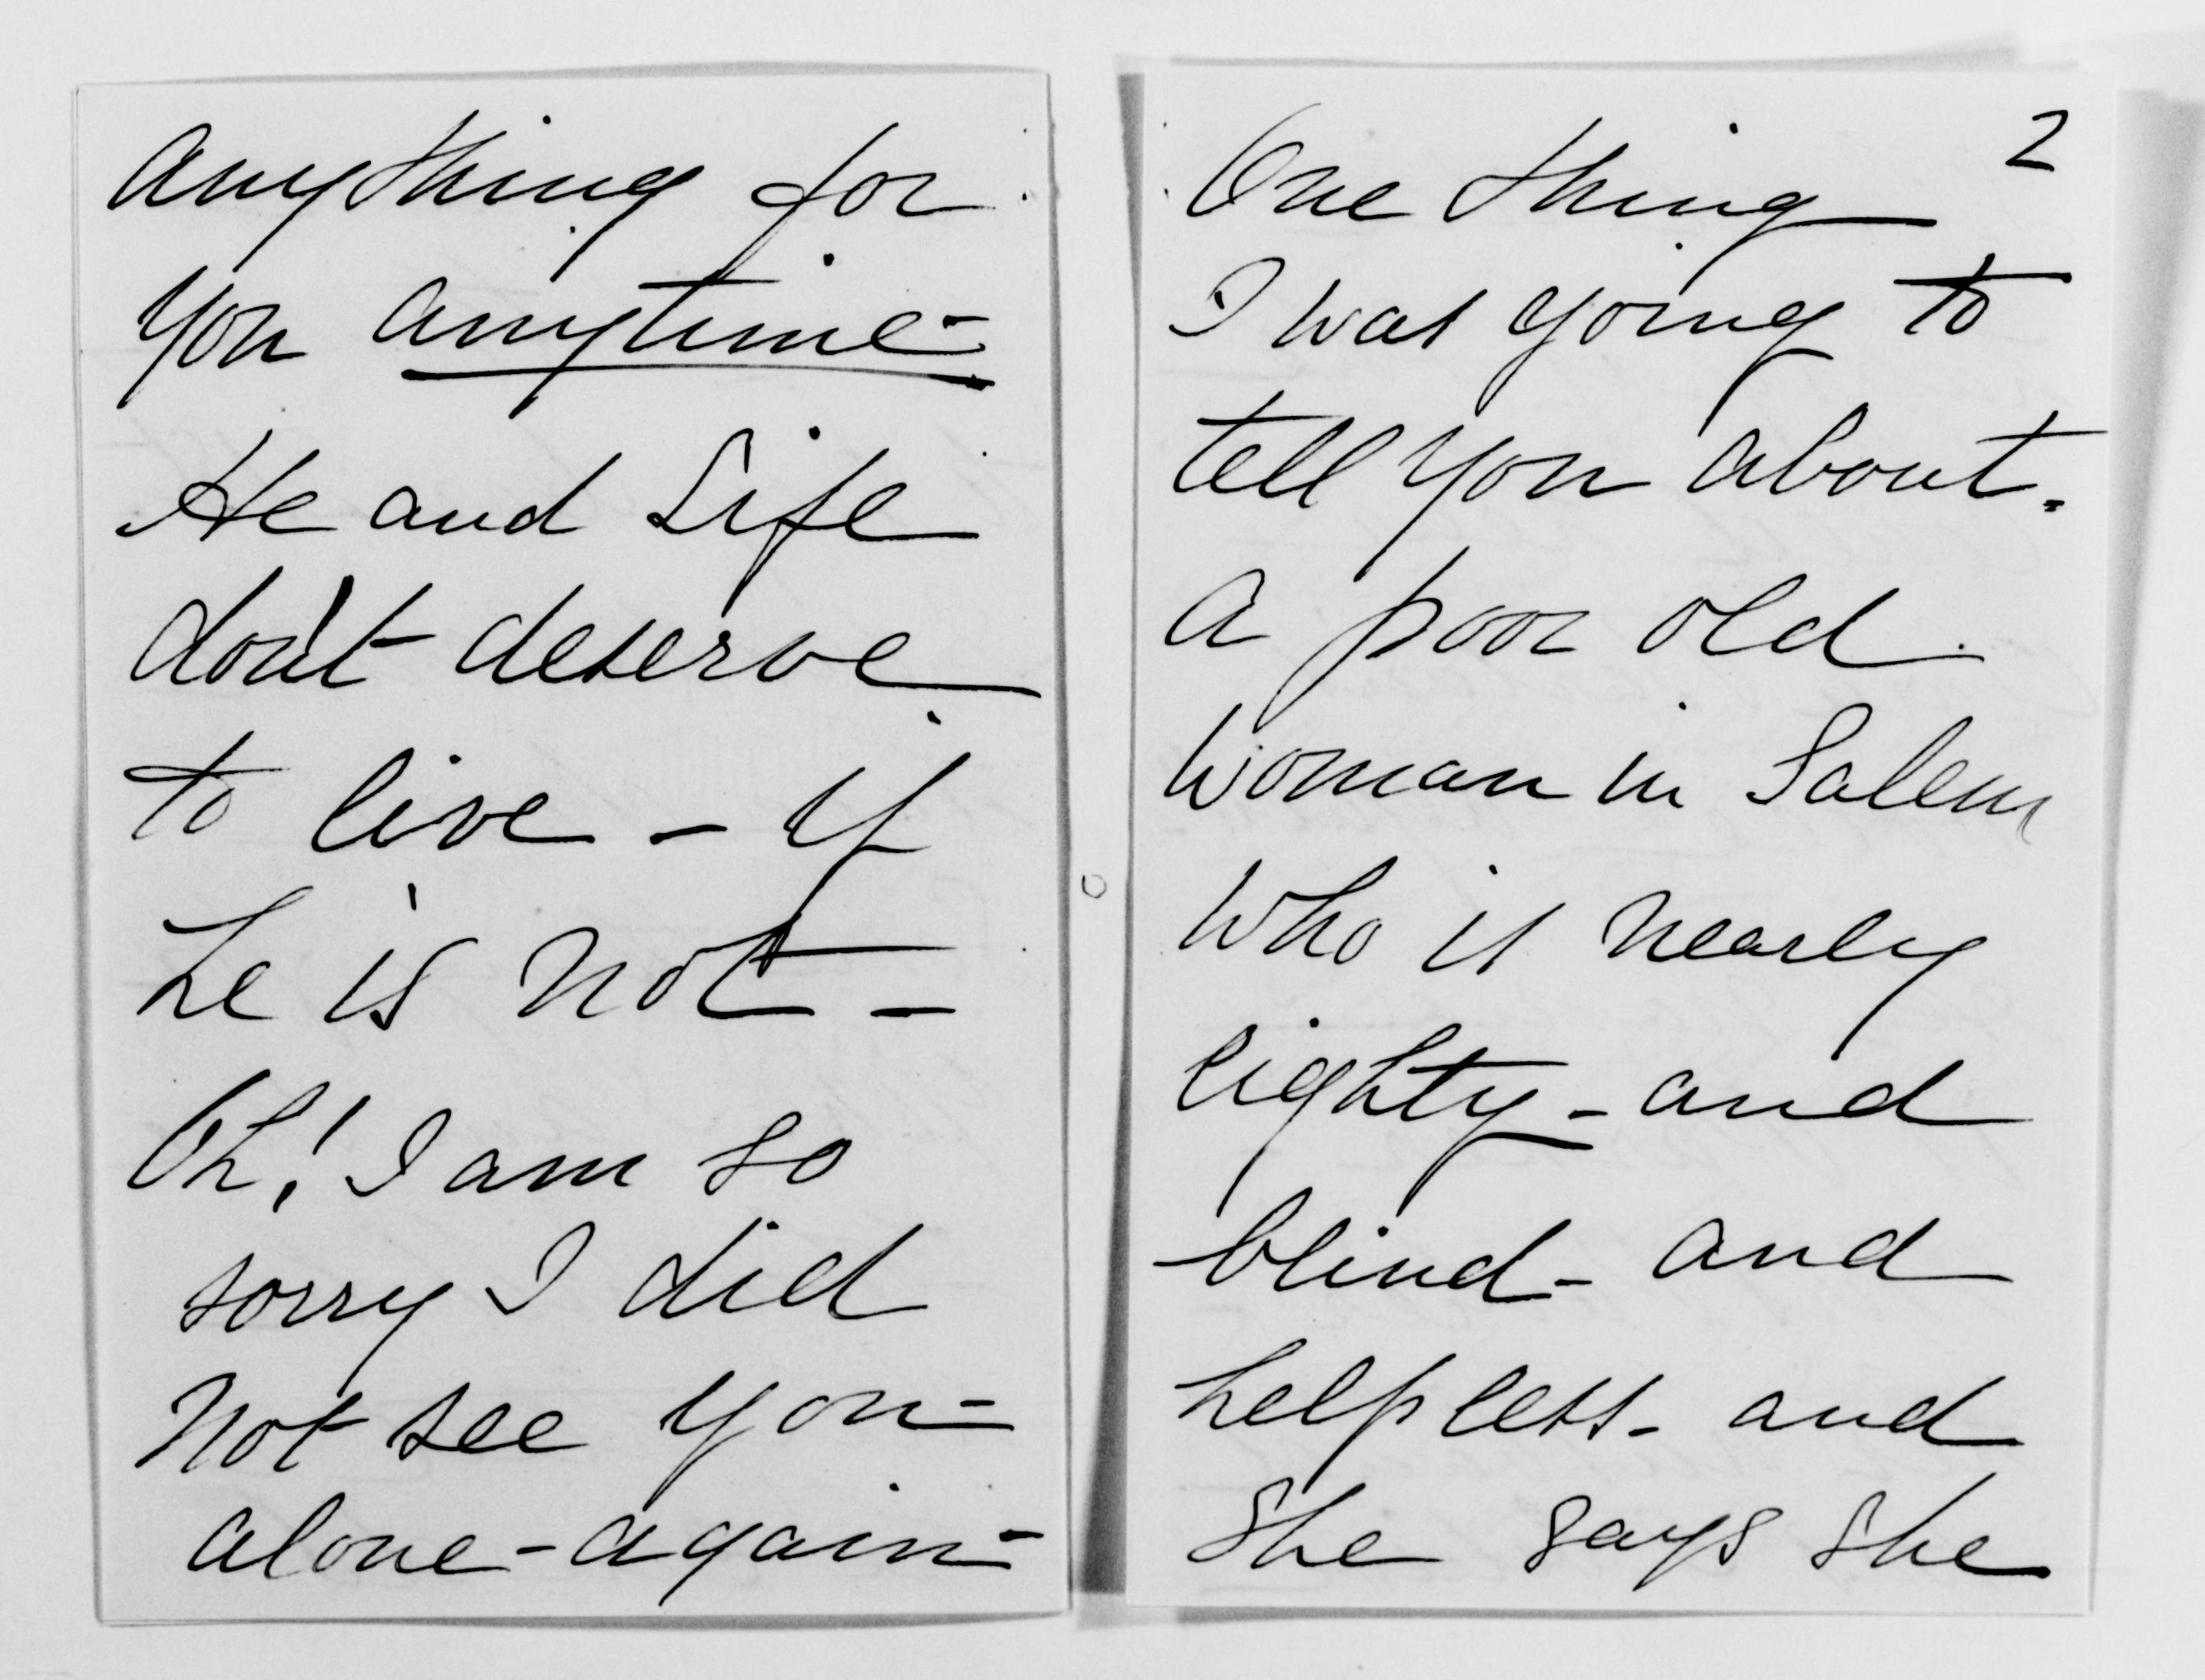 anything for
you anytime -
He and Life
don't deserve
to live - if
he is not -
Oh! I am so
sorry I did
not see you -
alone - again -
2
One thing
I was going to
tell you about.
a poor old
woman in Salem
who is nearly
eighty - and
blind - and
helpless - and
she says she